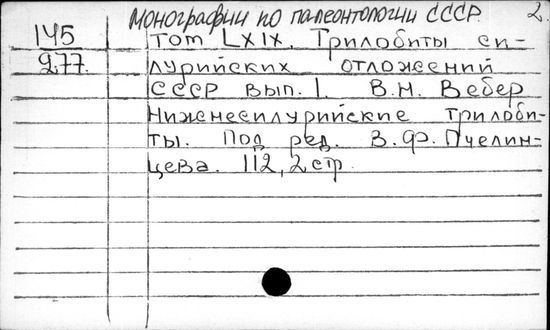 Монографии по палеонтологии СССР. 2
145
277.
Том LXIX. Трилобиты си-
лурийских отложений
СССР вып. 1. В.Н. Вебер
Нижнесилурийские трилоби-
ты. Под ред. В.Ф. Пчелин-
цева. 112, 2 стр.